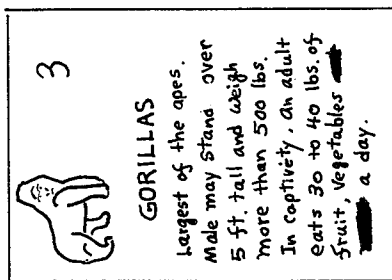 3
GORILLAS
Largest of the apes.
Male may stand over
5 ft. tall and weigh
more than 500 lbs.
In captivity, an adult
eats 30 to 40 lbs. of
fruit, vegetables
a day.